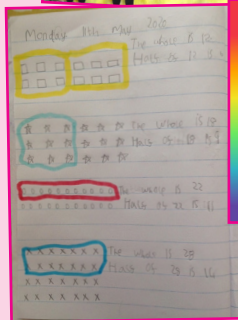 Monday 11th May 2020
The whole is 12
Half of 12 is
The whole is 18
Half of 18 is 9
The whole is 22
Half of 22 is 11
The whole is 28
Half of 28 is 14